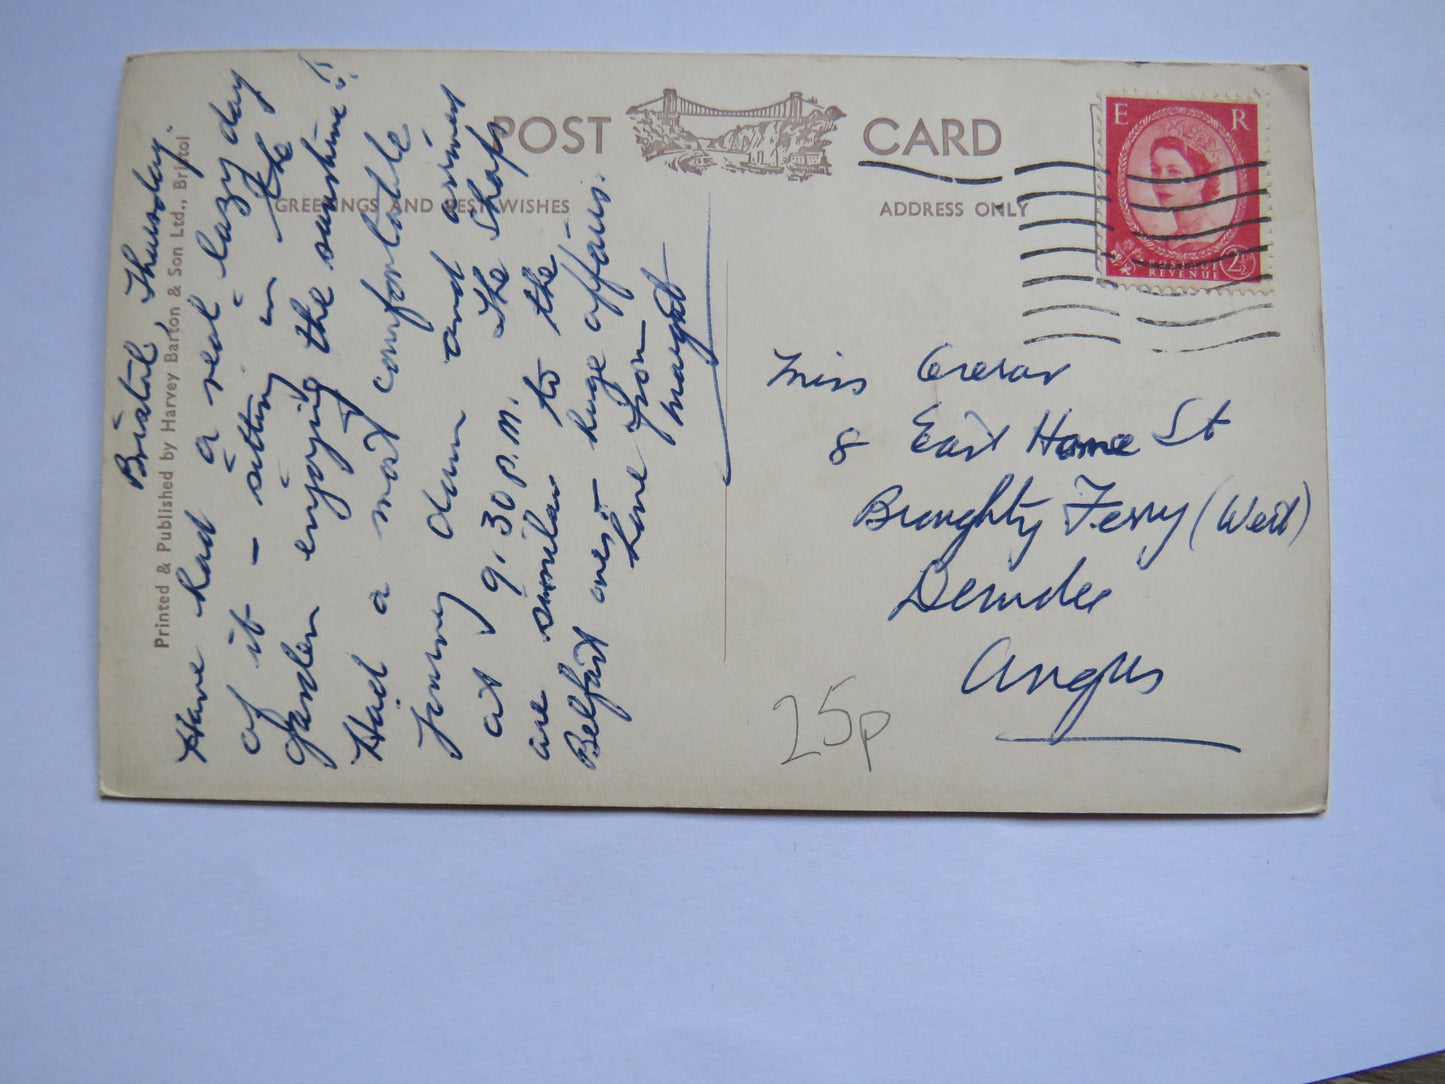 POST CARD
GREETINGS AND BEST WISHES
ADDRESS ONLY
Printed & Published by Harvey Barton & Son Ltd., Bristol
E R
POSTAGE
REVENUE
2½D
Bristol, Thursday.
Have had a real lazy day
of it – sitting in the
garden enjoying the sunshine!!
Had a most comfortable
journey down and arrived
at 9.30 p.m. The Shops
are similar to the
Belfast ones huge affairs.
Love from
Margt
Miss Crerar
8 East Home St
Broughty Ferry (West)
Dundee
Angus
25p